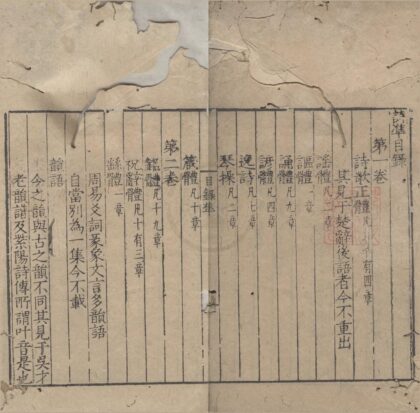 詩準目錄
第一卷
詩歌正體凡六十有四章
其見于楚辭後語者今不重出
謡體凡二章
謳體凡二章
誦體凡九章
諺體凡四章
逸詩凡七章
琴操凡二章
目錄
箴體凡十章
第二卷
銘體凡十九章
祝辭體凡十有三章
繇體一章
周易爻詞彖象文言多韻語
自當別為一集今不載
韻語
今之韻與古之韻不同其見于吳才
老韻譜及紫陽詩傳所謂叶音是也